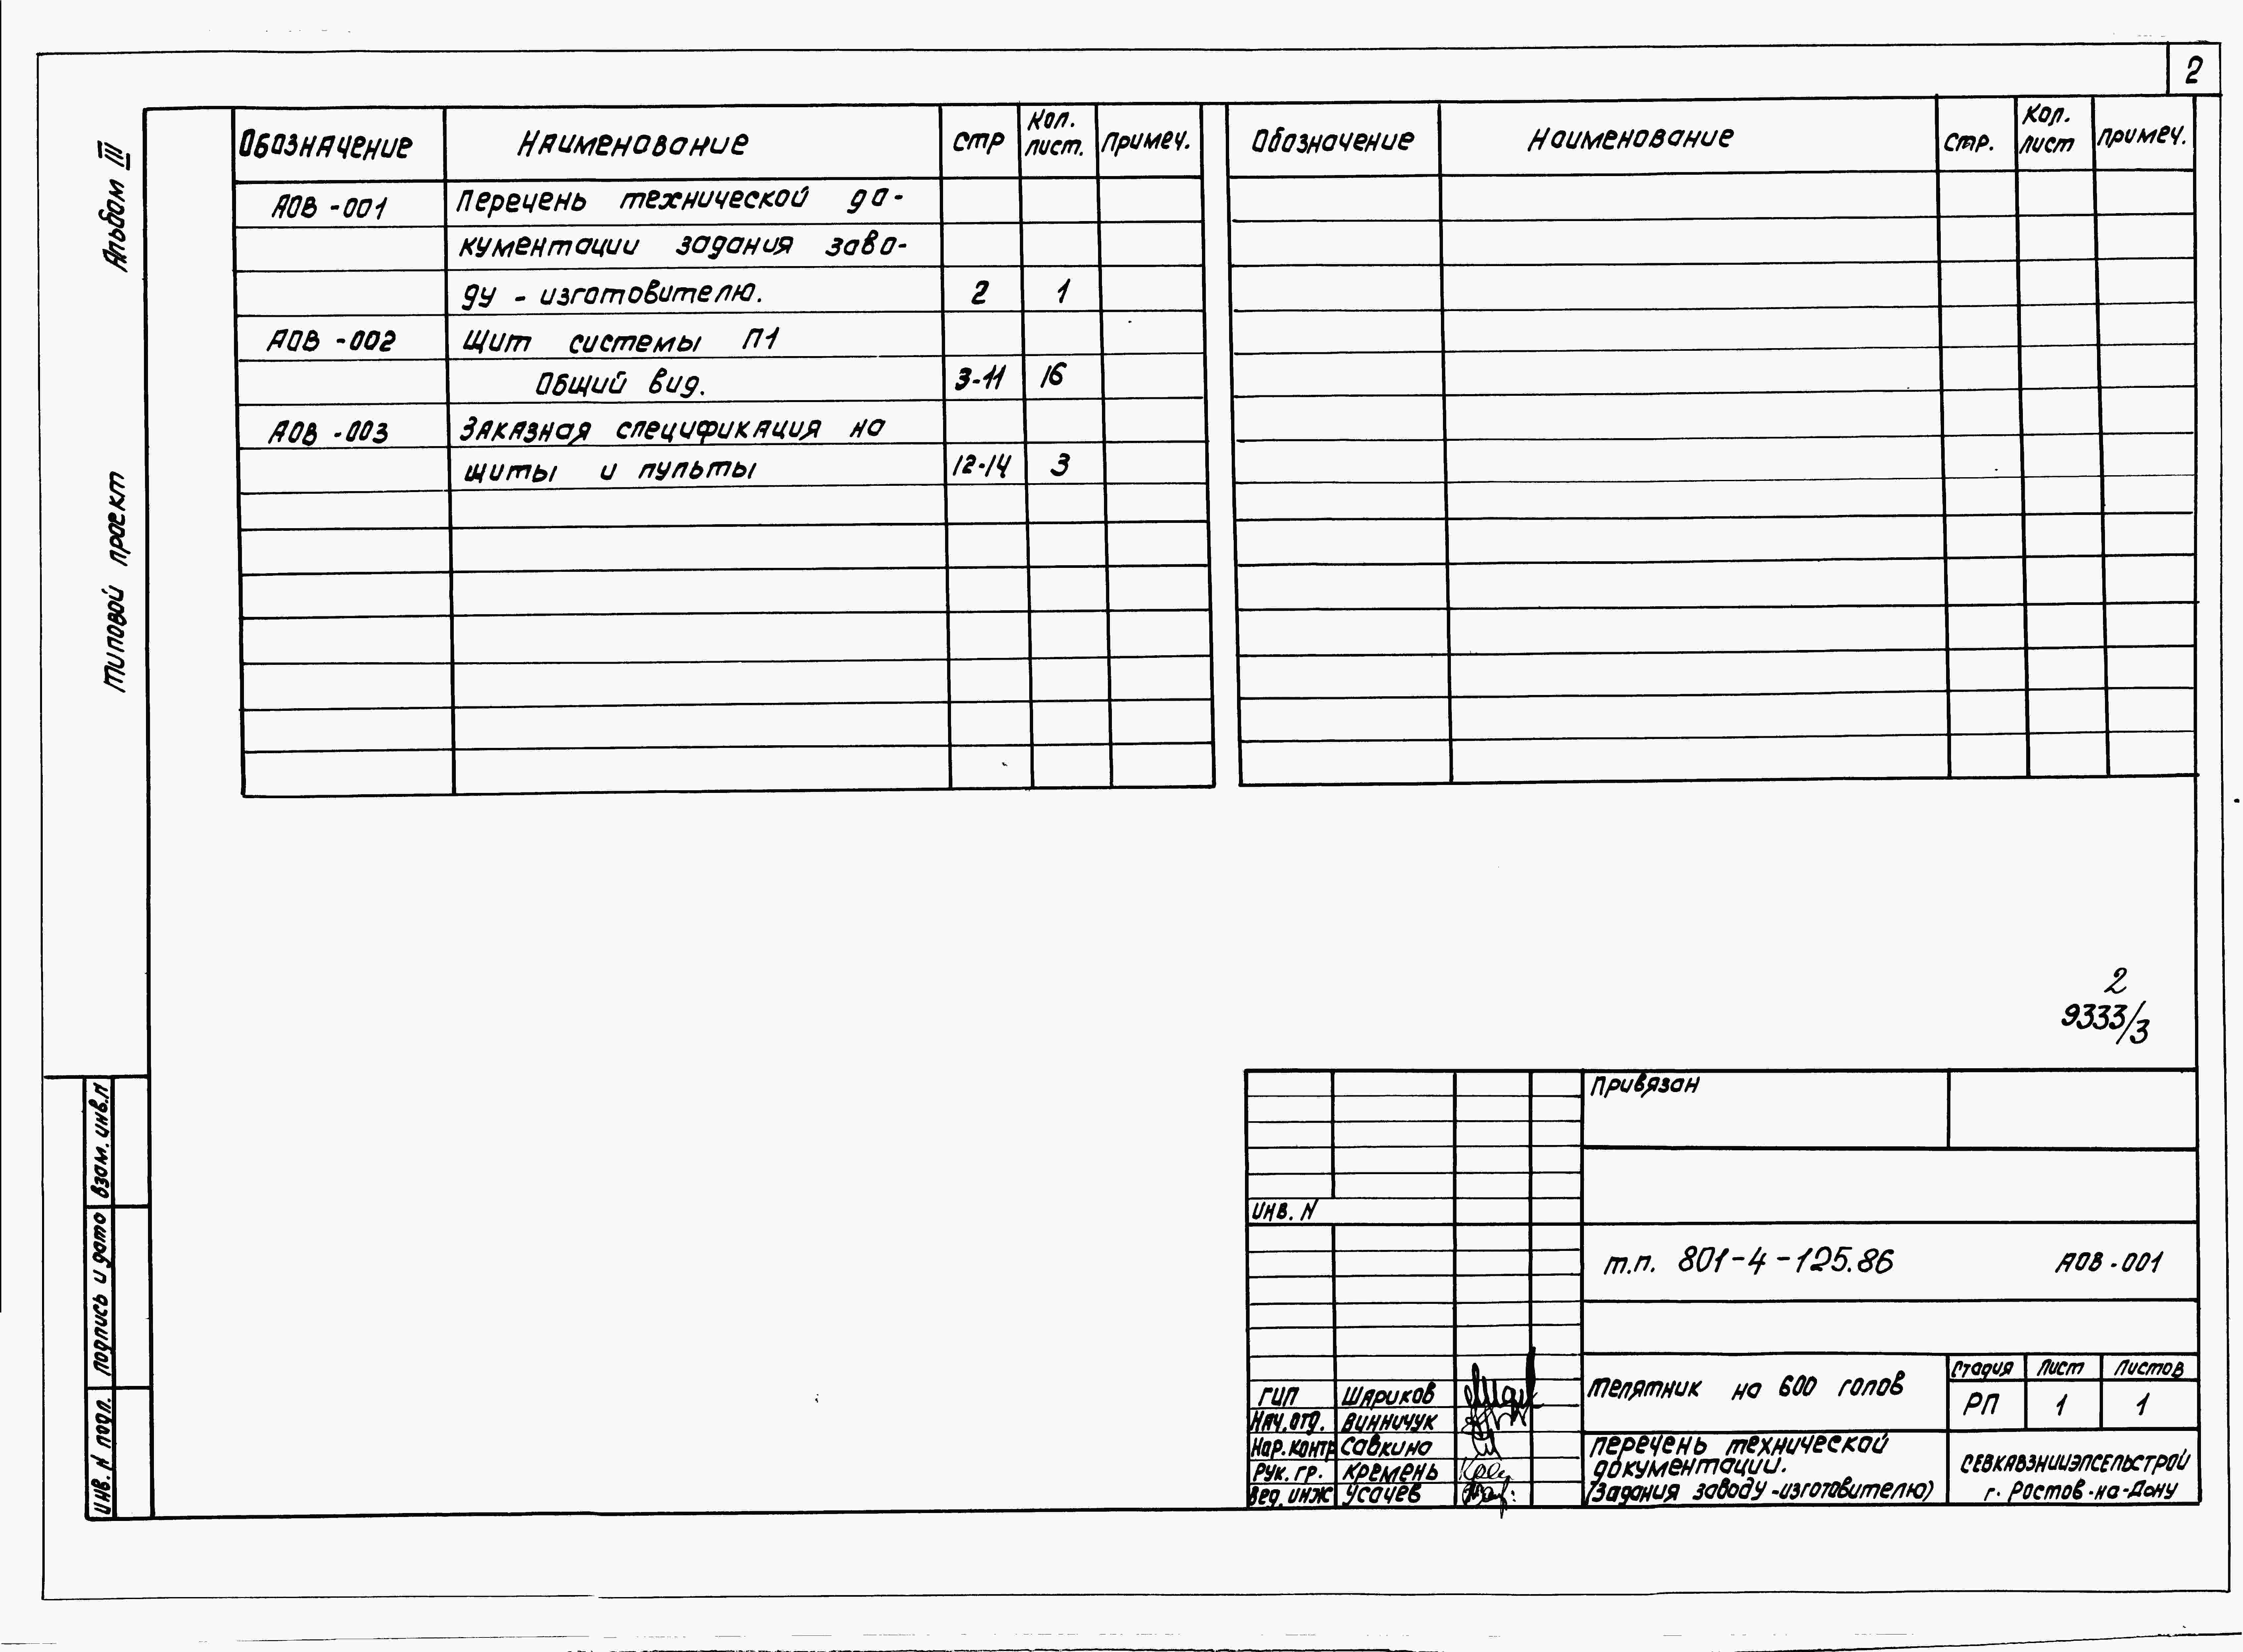 2
Альбом III
Типовой проект
Обозначение Наименование Стр Кол. лист. Примеч.
АОВ-001 Перечень технической до-
кументации задания заво-
ду - изготовителю. 2 1
АОВ-002 Щит системы П1
Общий вид. 3-11 16
АОВ-003 Заказная спецификация на
щиты и пульты 12-14 3
Обозначение Наименование Стр. Кол. лист Примеч.
2
9333/3
Взам. инв. N
Подпись и дата
Инв. N подл.
Привязан
Инв. N
т.п. 801-4-125.86 АОВ-001
ГИП Шариков
Нач. отд. Винничук
Нор. контр Савкина
Рук. гр. Кремень
Вед. инж Усачев
Телятник на 600 голов
Стадия Лист Листов
РП 1 1
Перечень технической
документации.
(Задания заводу-изготовителю)
СЕВКАВЗНИИЭПСЕЛЬСТРОЙ
г. Ростов-на-Дону